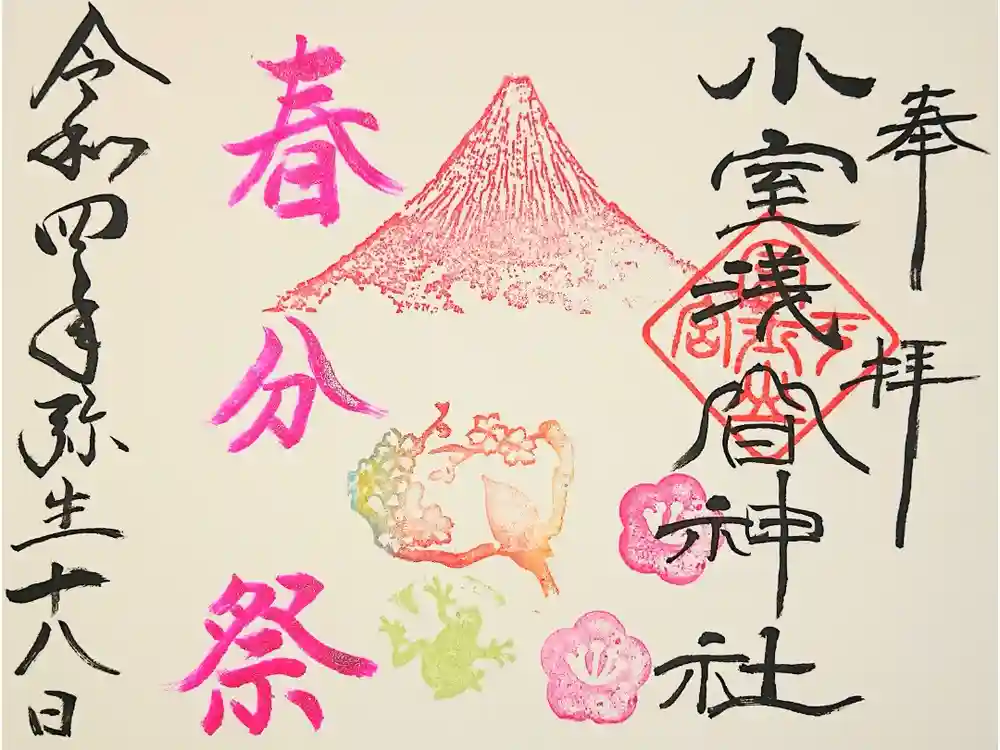 奉拝
小室浅間神社
春分祭
令和四年弥生十八日